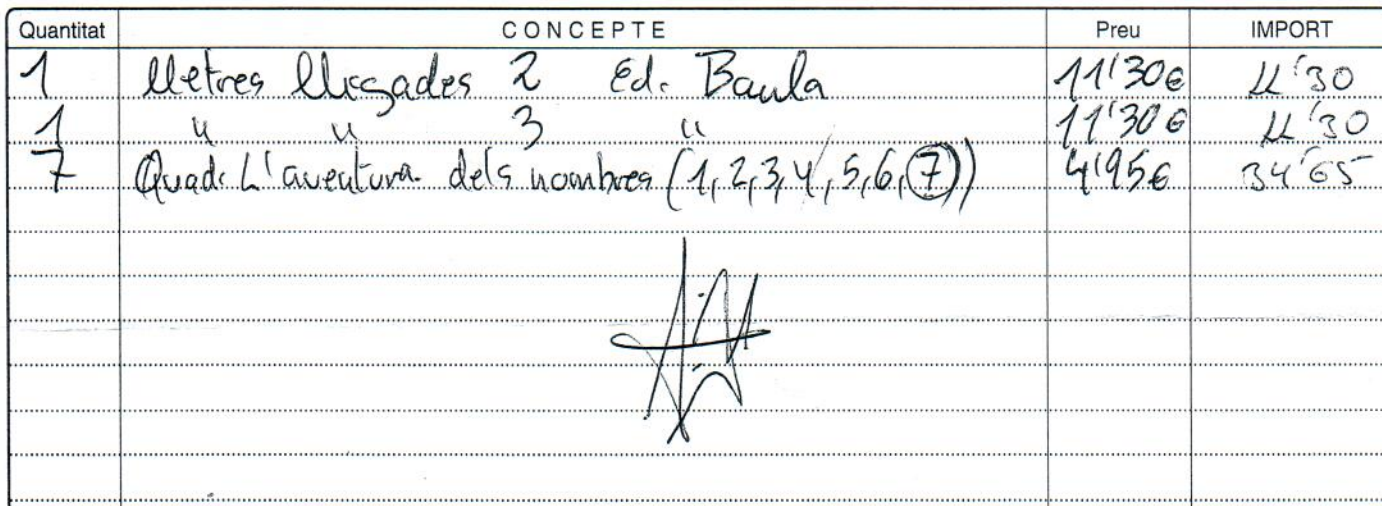 Quantitat CONCEPTE Preu IMPORT
1 lletres lligades 2 Ed. Baula 11'30€ 11'30
1 " " 3 " 11'30€ 11'30
7 Quad. L'aventura dels nombres (1, 2, 3, 4, 5, 6, 7) 4'95€ 34'65